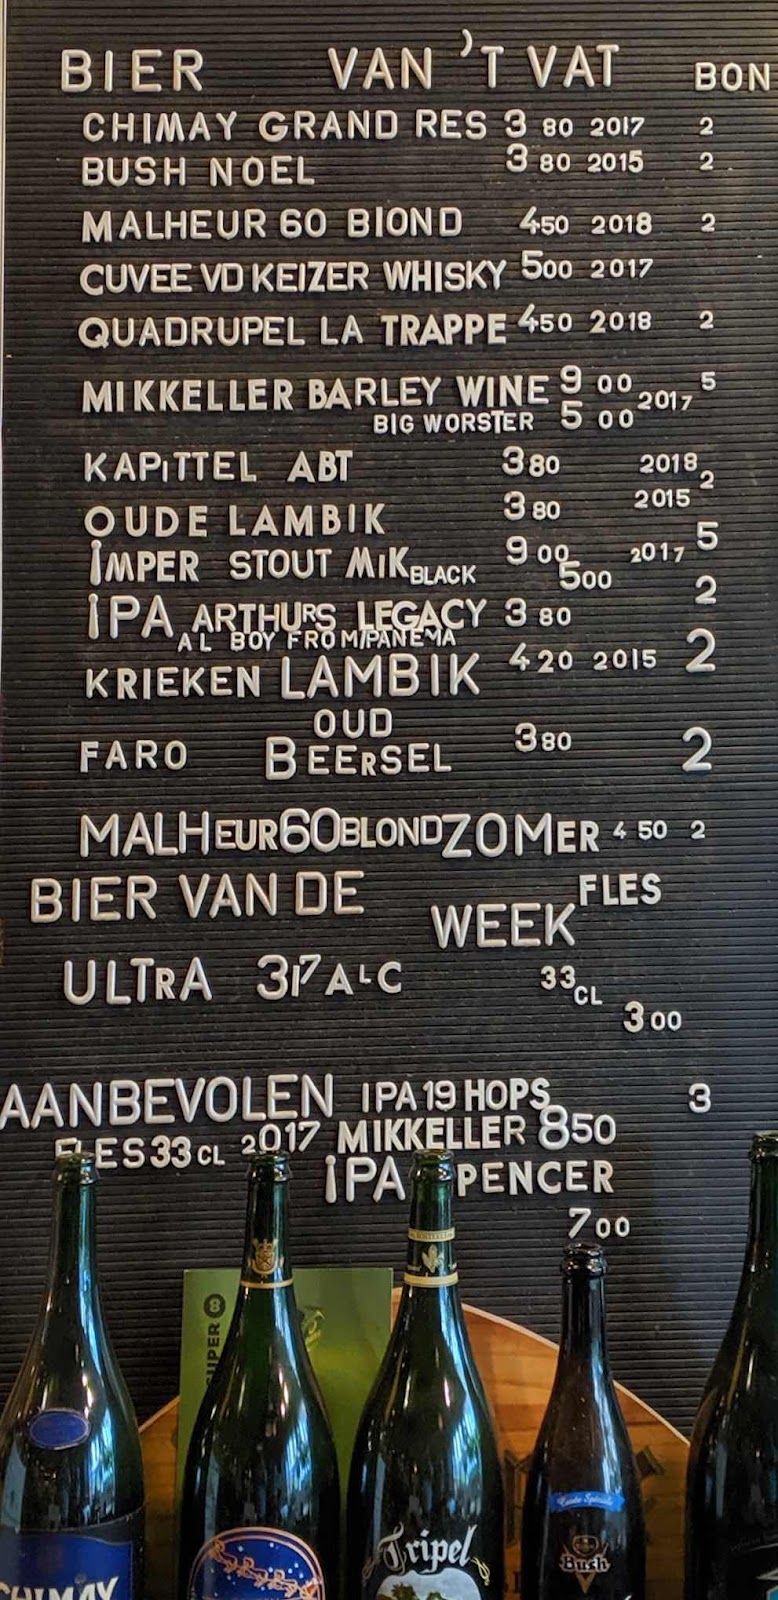 BIER VAN 'T VAT BON
CHIMAY GRAND RES 3 80 2017 2
BUSH NOEL 3 80 2015 2
MALHEUR 60 BIOND 450 2018 2
CUVEE VD KEIZER WHISKY 500 2017
QUADRUPEL LA TRAPPE 450 2018 2
MIKKELLER BARLEY WINE 9 00 2017 5
BIG WORSTER 5 00
KAPITTEL ABT 380 2018 2
OUDE LAMBIK 3 80 2015
IMPER STOUT MIK BLACK 9 00 2017 5
500
IPA ARTHURS LEGACY 3 80 2
AL BOY FROM IPANEMA
KRIEKEN LAMBIK 4 20 2015 2
OUD
FARO BEERSEL 380 2
MALHEUR60BLONDZOMER 4 50 2
BIER VAN DE WEEK FLES
ULTRA 317 ALC 33 CL
300
AANBEVOLEN IPA 19 HOPS 3
FLES 33 CL 2017 MIKKELLER 850
IPA PENCER
700
SUPER 8
Tripel
Cuvée Spéciale
Bush
CHIMAY